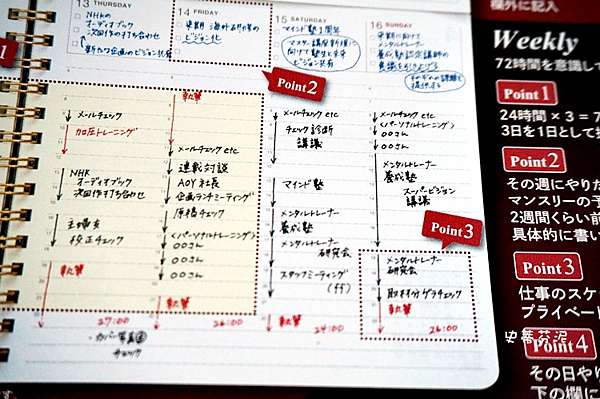 欄外に記入
13 THURSDAY
14 FRIDAY
15 SATURDAY
16 SUNDAY
NHKの
オーディオブック
次回作の打ち合わせ
新たな企画のビジョン共有
ビジョン化
マインド塾1周年
ビジョン共有
1
Point2
メールチェック
加圧トレーニング
NHK
オーディオブック
次回作打ち合わせ
主婦友
校正チェック
執筆
27:00
カバー写真
チェック
執筆
メールチェック etc
連載対談
AOY 社長
企画ランチミーティング
原稿チェック
<パーソナルトレーニング>
〇〇さん
〇〇さん
〇〇さん
執筆
26:00
メールチェック etc
チェック診断
講議
マインド塾
メンタルトレーナー
養成塾
メンタルトレーナー
研究会
スタッフミーティング
執筆
24:00
メールチェック etc
<パーソナルトレーニング>
〇〇さん
〇〇さん
メンタルトレーナー
養成塾
スーパービジョン
講議
Point3
メンタルトレーナー
研究会
取材分ゲラチェック
執筆
26:00
Weekly
72時間を意識して
Point1
24時間 × 3 = 7
3日を1日として捉
Point2
その週にやりた
マンスリーの予
2週間くらい前
具体的に書い
Point3
仕事のスケ
プライベート
Point4
その日やり
下の欄に